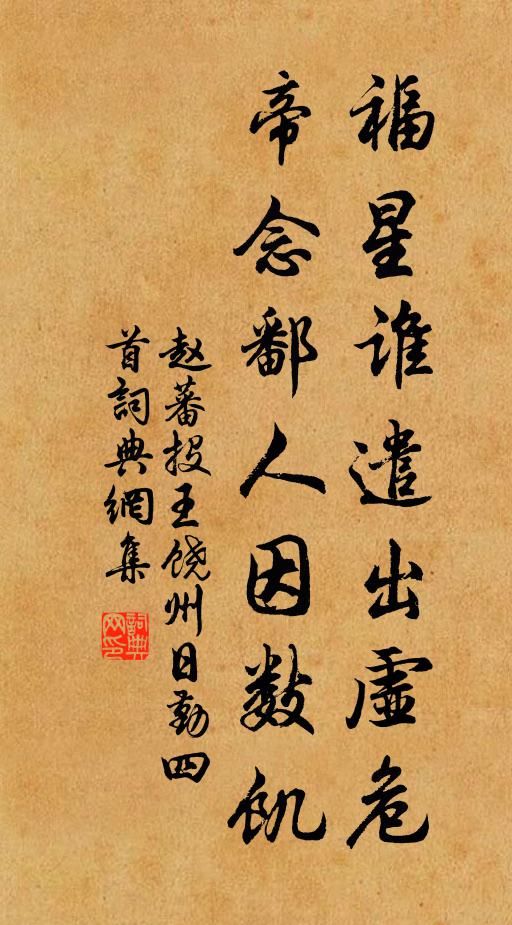 福星谁遣出虚危
帝念鄱人因数饥
赵蕃投王饶州日勤四
首詞典網集
詞典网印